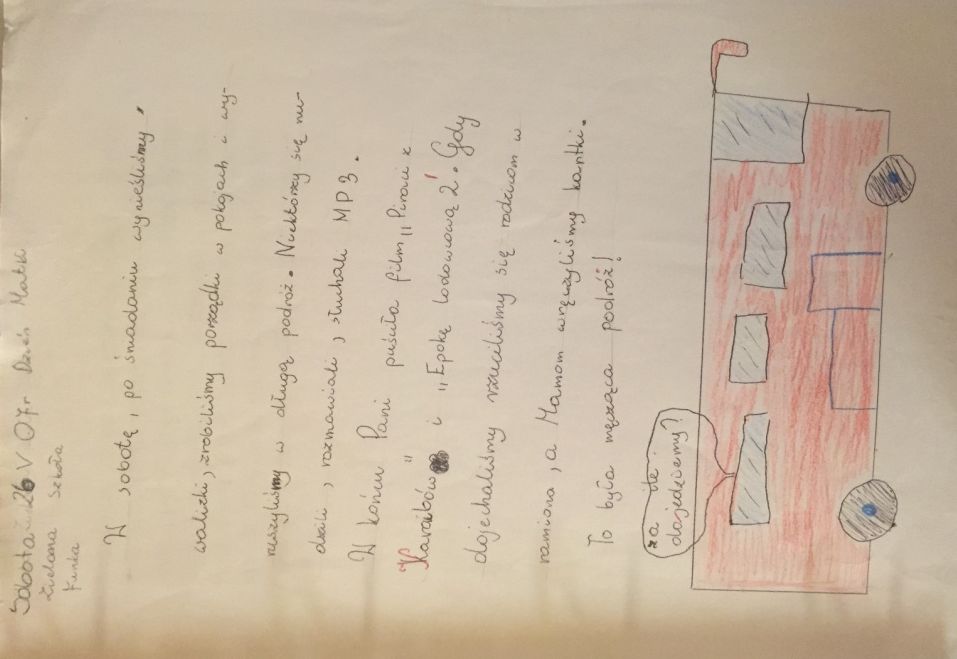 Sobota 26 V 07r Dzień Matki
Zielona Szkoła
Funka
W sobotę, po śniadaniu wynieśliśmy
walizki, zrobiliśmy porządki w pokojach i wy-
ruszyliśmy w długą podróż. Niektórzy się nu-
dzili, rozmawiali, słuchali MP3.
W końcu Pani puściła film "Piraci z
Karaibów" i "Epokę lodowcową 2". Gdy
dojechaliśmy rzuciliśmy się rodzicom w
ramiona, a Mamom wręczyliśmy kartki.
To była męcząca podróż!
za ile
dojedziemy?